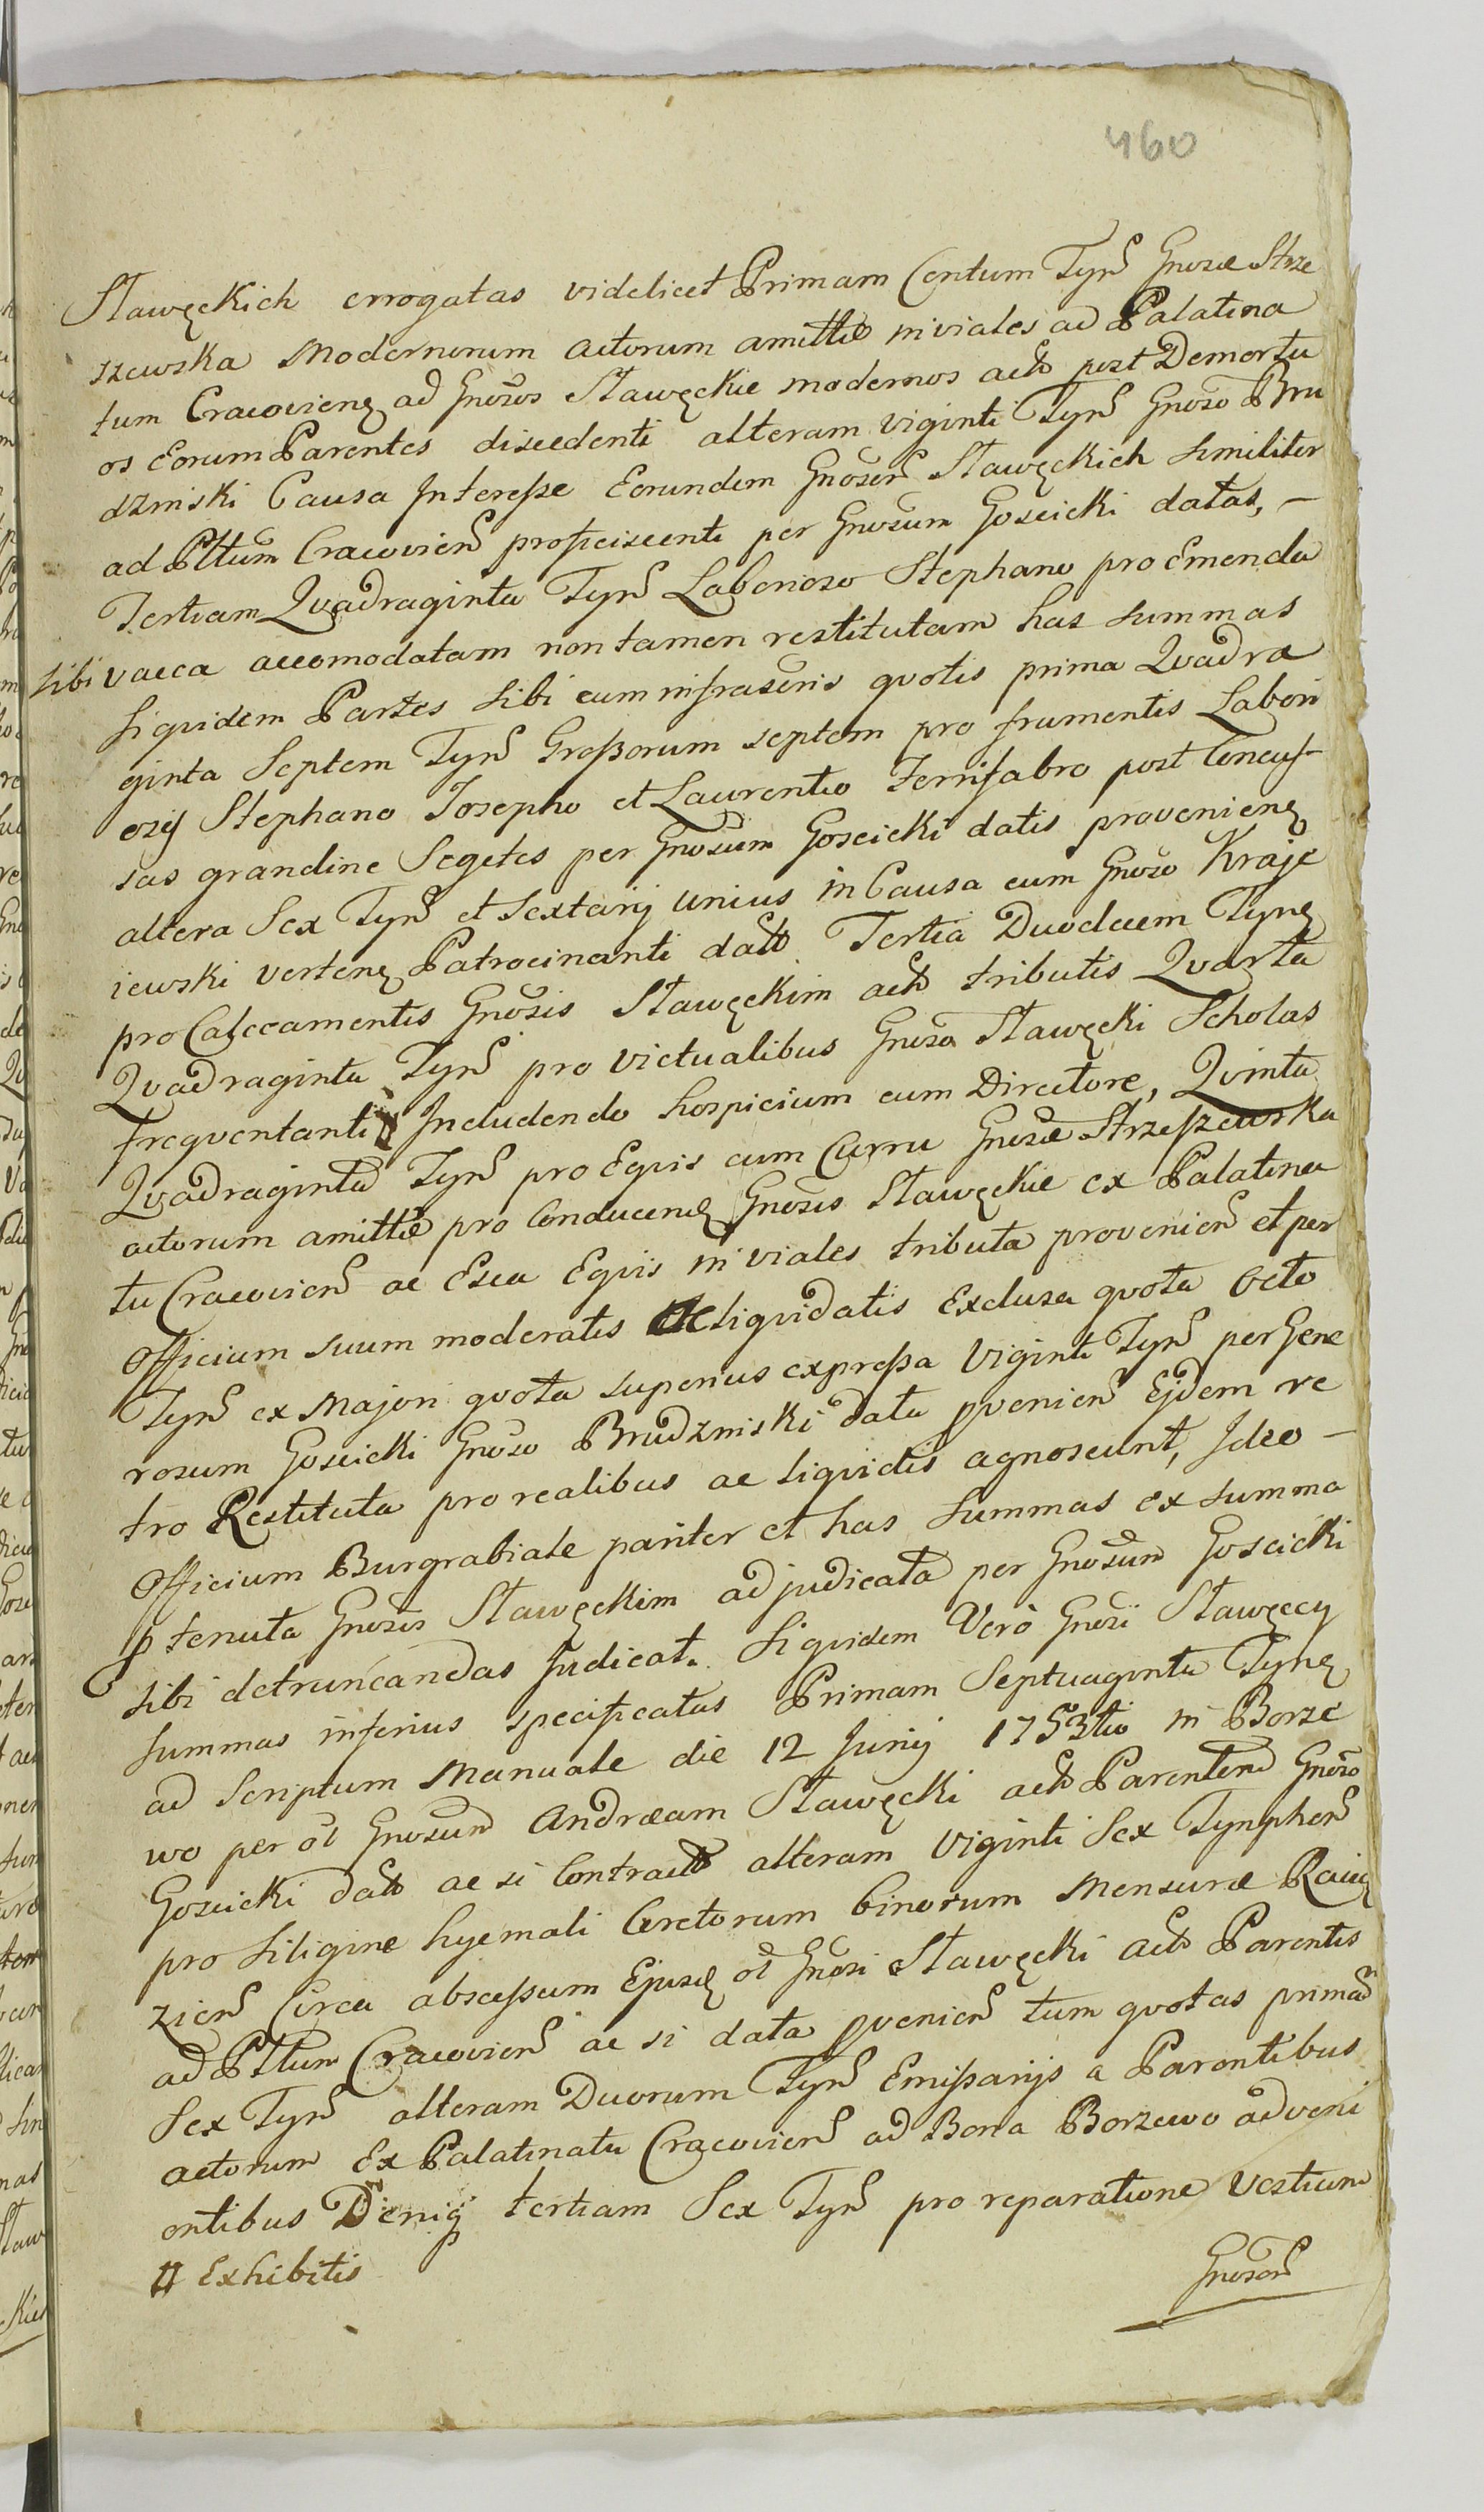 460
Stawęckich errogatas videlicet Primam Centum Tynf Gnosæ Strze
szewska Modernorum actorum amittæ in viales ad Palatina
tum Cracovienę ad Gnosos Stawęckie modernos actô post Demortu
os Eorum Parentes discedenti alteram Viginti Tynf Gnoso Bru
dzinski Causa Interesse Eorundem Gnosor Stawęckich similiter
ad Pltum Cracovien proficiscenti per Gnosum Goscicki datas, –
Tertiam Qvadraginta Tynf Laborioso Stephano pro Emenda
sibi vacca accomodatam non tamen restitutam has summas
siqvidem Partes sibi cum infrascris qvotis prima Qvadra
ginta Septem Tynf Grossorum septem pro frumentis Labori
osis Stephano Josepho et Laurentio Ferrifabro post Concus
sas grandine Segetes per Gnosum Goscicki datis provenienę
altera Sex Tynf et Sextarij unius in Causa cum Gnoso Kraje
iewski vertenę Patrocinanti datô. Tertia Duodecem Tynę
pro Calceamentis Gnosis Stawęckim actô tributis Qvarta
Qvadraginta Tynf pro victualibus Gnoso Stawęcki Scholas
freqventanti Includendo hospicium cum Directore, Qvinta
Qvadraginta Tynf pro Eqvis cum Curru Gnosæ Strzeszewska
actorum amittæ pro Conducenę Gnosis Stawęckie ex Palatina
tu Cracovien ac Esca Eqvis in viales tributa provenien et per
Officium suum moderatis ac liqvidatis Exclusa qvota Octo
Tynf ex Majori qvota superius expressa Viginti Tynf per Gene
rosum Goscicki Gnoso Brudzinski data pvenien Ejdem re
tro Restituta pro realibus ac liqvidis agnoscunt, Ideo –
Officium Burgrabiale pariter et has summas ex summa
p tenuta Gnosis Stawęckim adjudicata per Gnosum Goscicki
sibi detruncandas Judicat. Siqvidem Verò Gnosi Stawęccy
summas inferius specificatas Primam Septuaginta Tynę
ad Scriptum Manuale die 12 Junij 1753tio in Borze
wo per ol Gnosum Andræam Stawęcki actô Parentem Gnoso
Goscicki datô ac si Contractô alteram Viginti Sex Tynphon
pro siligine hyemali Coretorum binorum Mensuræ Raiig
zien Circa abscessum Ejusę ol Gnosi Stawęcki actô Parentis
ad Pltum Cracovien ac si data pvenien tum qvotas primam
Sex Tynf alteram Duorum Tynf Emissarijs a Parentibus
actorum Ex Palatinatu Cracovien ad Bona Borzewo adveni
entibus Deniq tertiam Sex Tynf pro reparatione Vestium
# Exhibitis
Gnosor